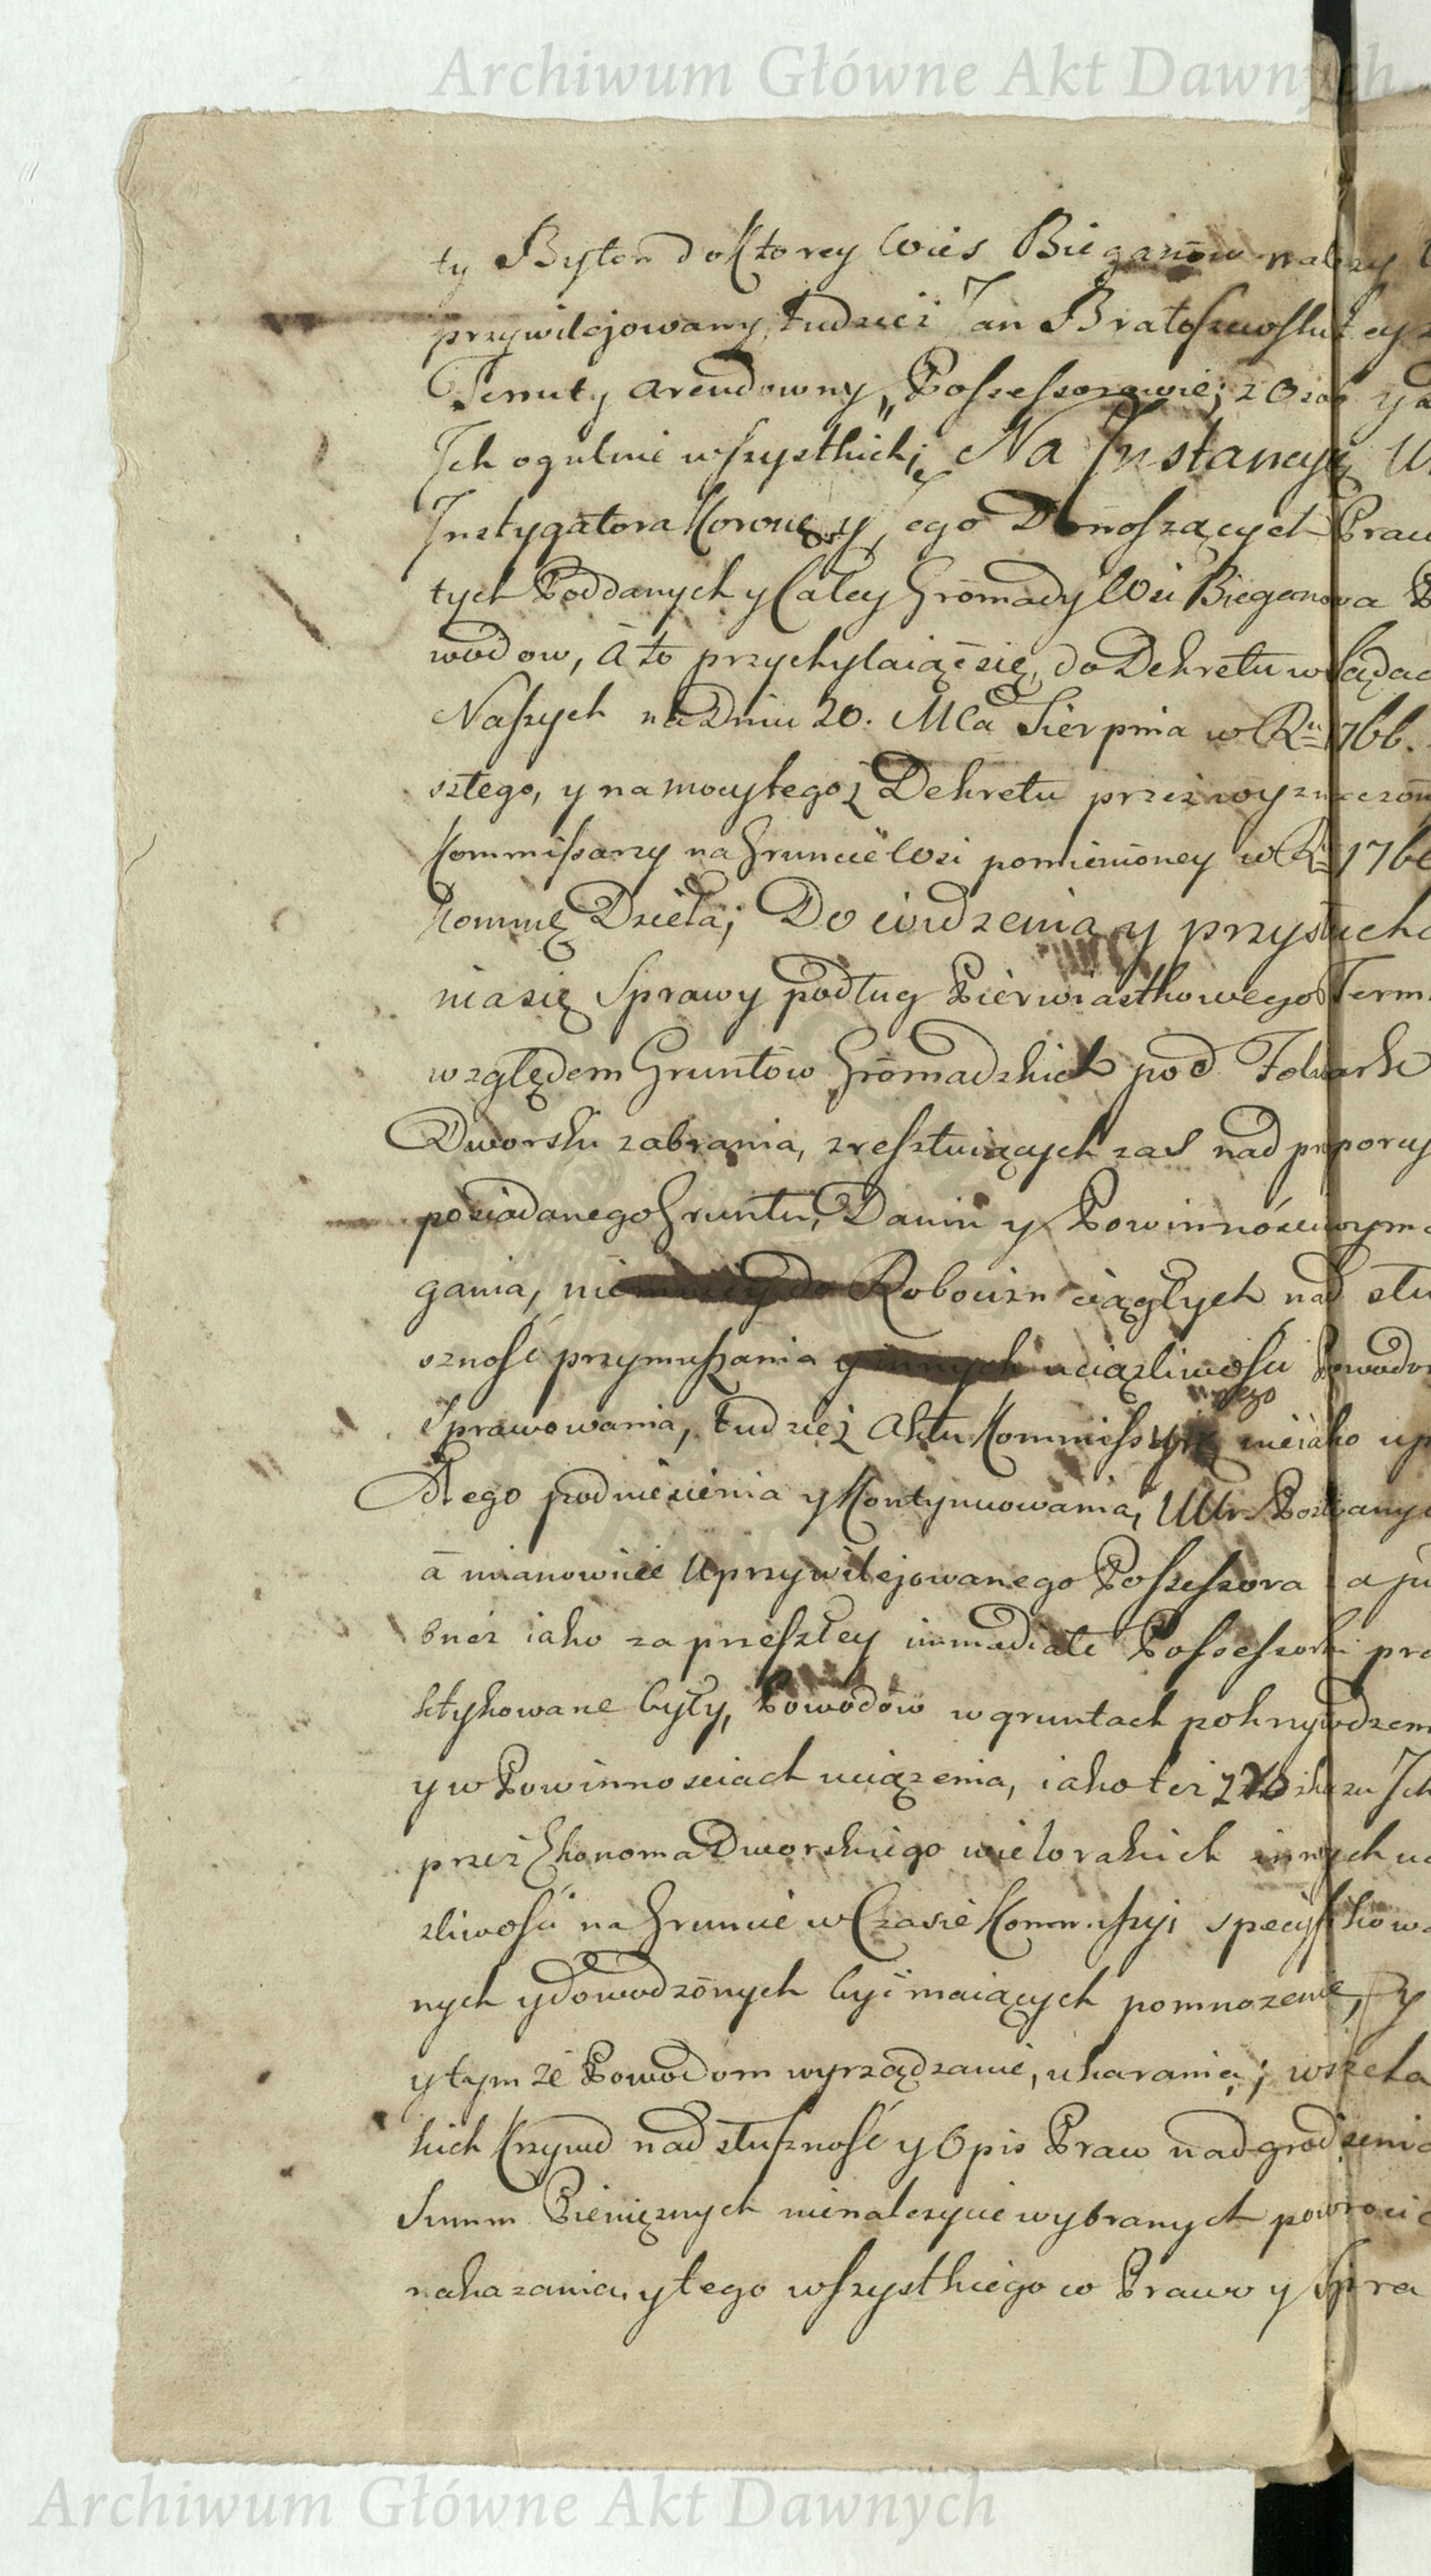 Archiwum Główne Akt Dawnych
ty Bytoń do Ktorey Wieś Bieganów należy
przywilejowany, tudzież Jan Bratoszewski tey z
Tenuty arendowny, Possessorowie; z Osob y z
Ich ogulnie wszystkich; Na Instancyą U
Instygatora Koronego y Jego Donoszących Praw
tych Poddanych y Całey Gromady Wsi Bieganowa P
wodow, á to przychylaiąć się, do Dekretu w Sądac
Naszych na Dniu 20. Mca Sierpnia w Ru 1766.
szłego, y na mocy tegoż Dekretu przez wyznaczon
Kommissarzy na Gruncie Wsi pomienioney w R. 176
konmę Dzieła; Do widzenia y przysłucha
nia się Sprawy podług Pierwiastkowego Term
względem Gruntow Gromadzkich pod Folwark
Dworski zabrania, zresztuiących zaś nad proporcy
posiadanego Gruntu, Danin y Powinności wyma
gania, niemniey do Robocizn ciągłych nad słu
szność przymuszania y innych uciążliwości Powodo
sprawowania, tudzież Aktu Kommissyi nieiako up
dłego podniesienia y Kontynuowania, UUr. Pozwany
á mianowicie Uprzywilejowanego Possessora za ju
bnież iako za przeszłey immediate Possessorki pra
ktykowane były, Powodów w gruntach pokrzywdzen
y w Powinnosciach uciążenia, iako też z Rozkazu Ich
przez Ekonoma Dworskiego wielorakich innych uc
żliwości na Gruncie w Czasie Kommissyi specyfikowa
nych y dowodzonych być maiących pomnożenie, y
y tymże Powodom wyrządzanie, ukarania; wszela
kich Krzywd nad słuszność y Opis Praw nadgrodzenia
Summ Pieniężnych nienależycie wybranych powrocic
nakazania, y tego wszystkiego co Prawo y Spra
Archiwum Główne Akt Dawnych